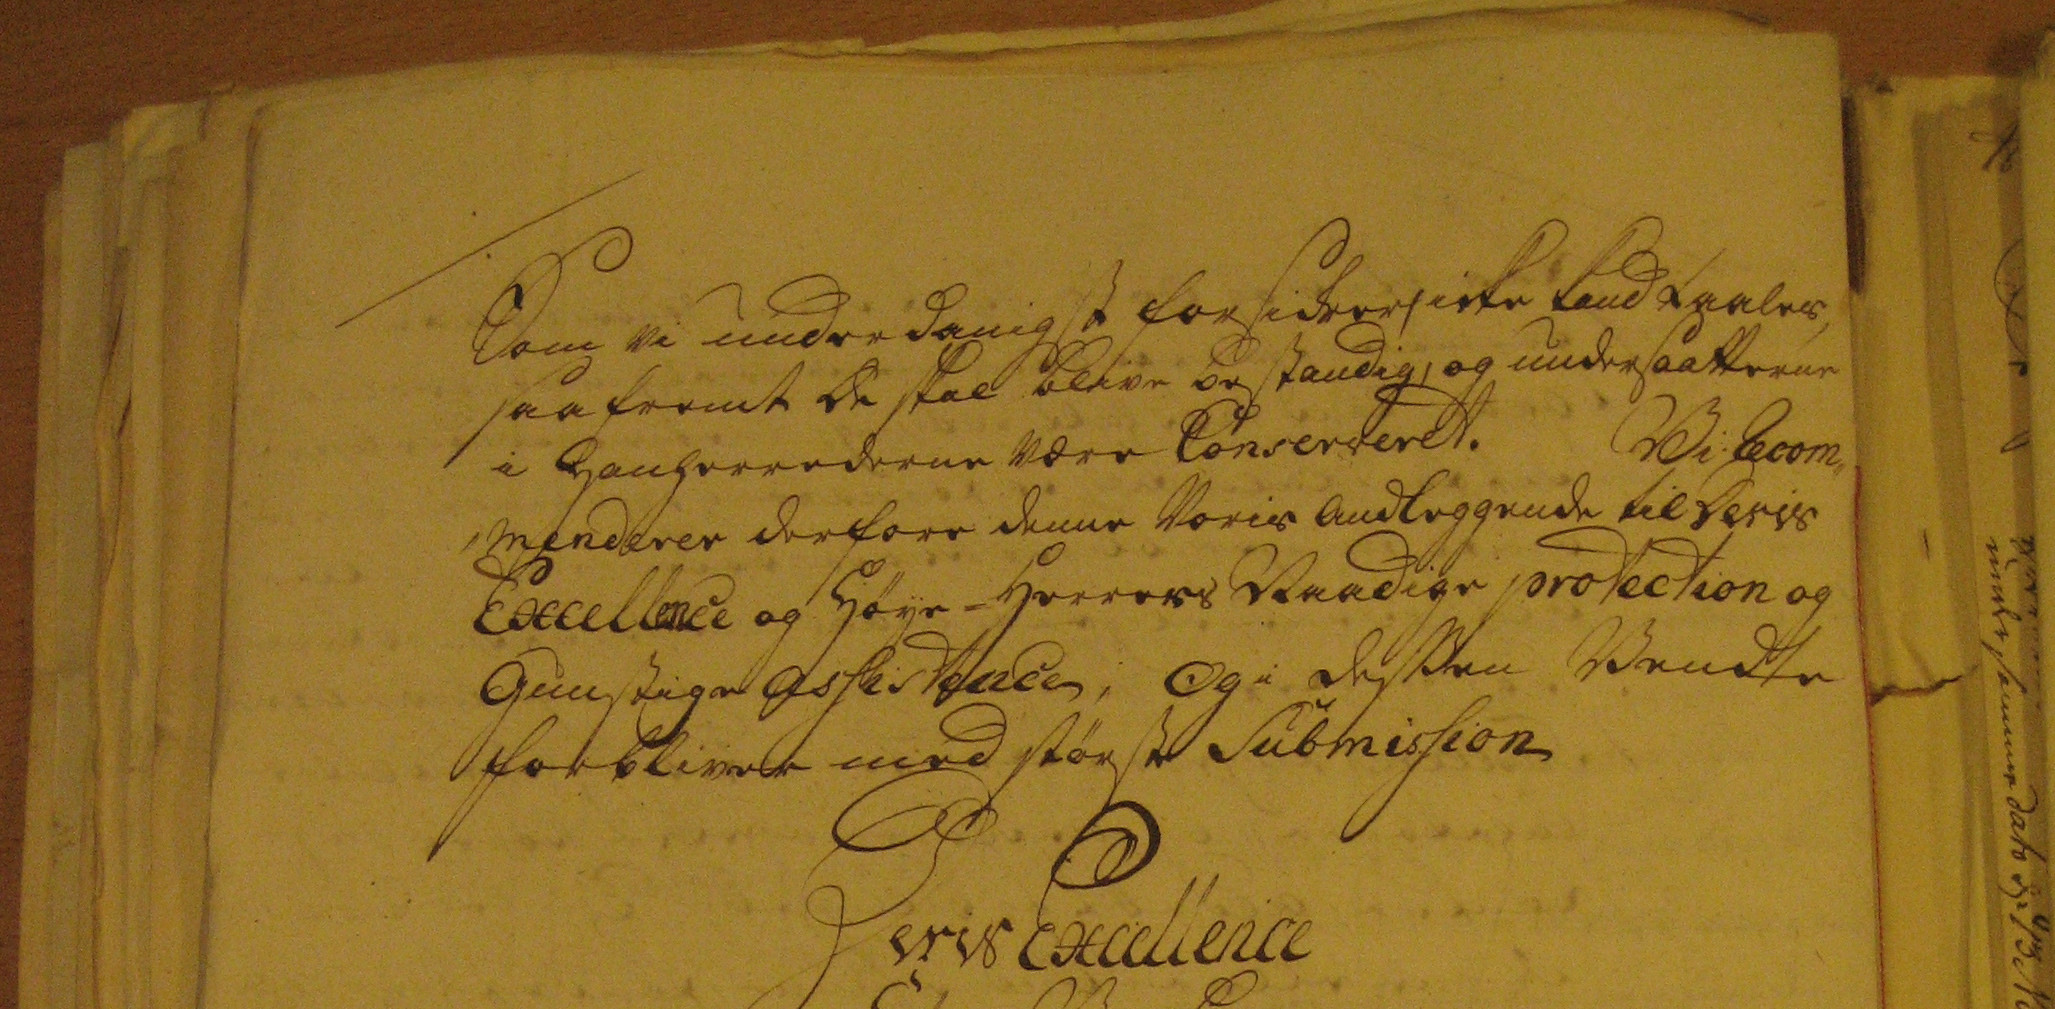 Som vi underdanigst forsikrer icke kand taales,
saa fremt de skal blive bestandig, og undersaatterne
i Hanherrederne være Conserveret. Vi Recom„
„menderer derfore denne Voris Andleggende til Deris
Excellence og Høye=Herrers Naadige protection og
Gunstige assistence, Og i dessen Vendte
forbliver med største Submission
Deris Excellence